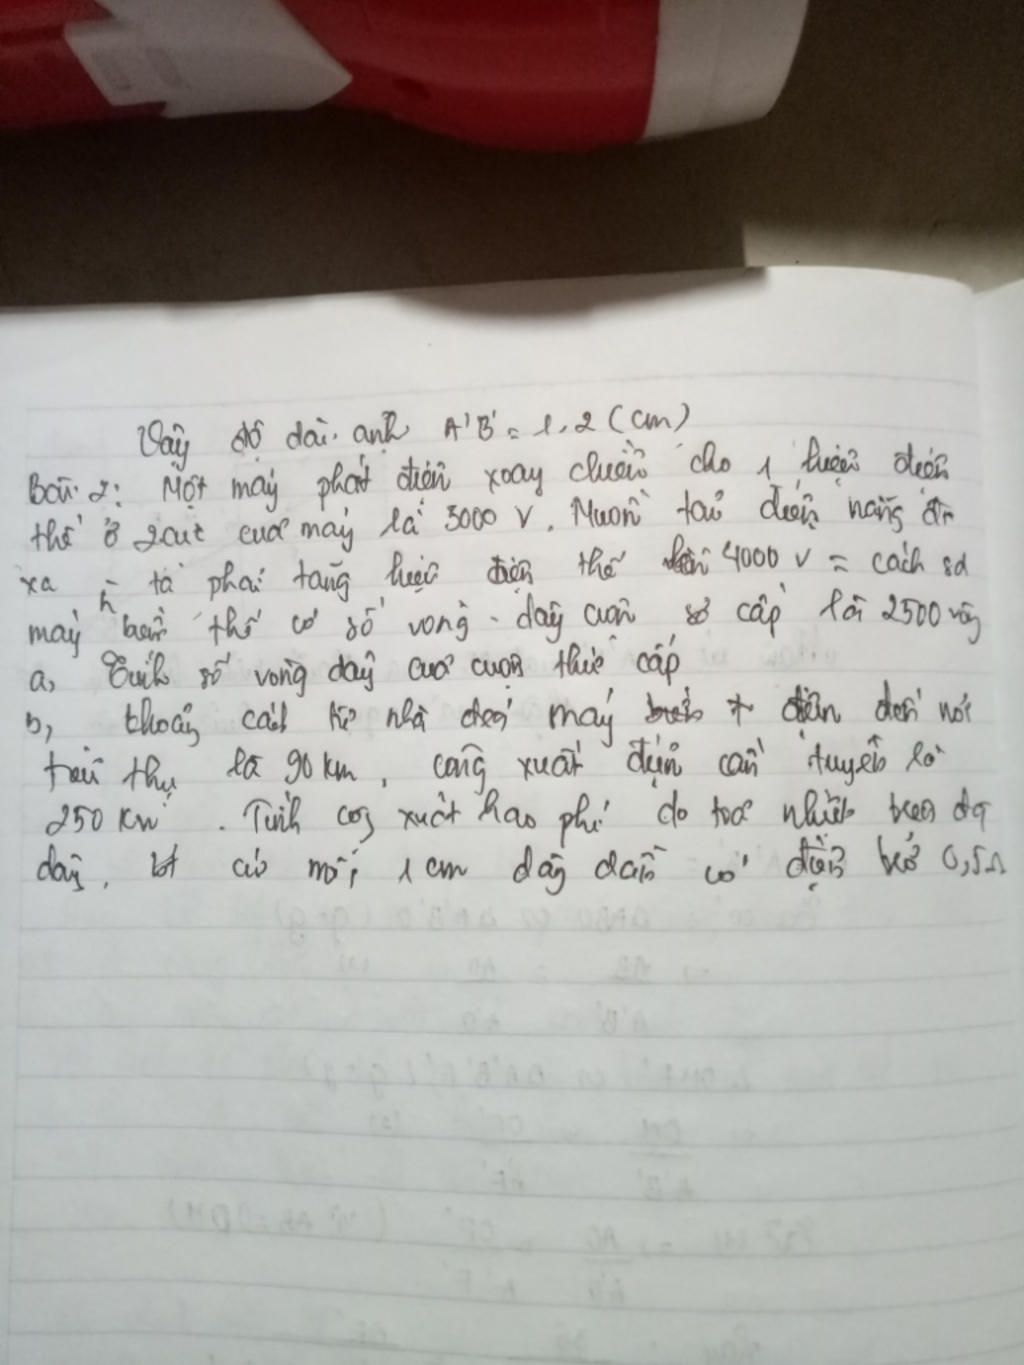 Vậy độ dài ảnh A'B' = 1,2 (cm)
Bài 2: Một máy phát điện xoay chiều cho 1 hiệu điện
thế ở 2 cực của máy là 3000 V. Muốn tải điện năng đi
xa ta phải tăng hiệu điện thế lên 4000 V = cách sd
máy biến thế có số vòng dây cuộn sơ cấp là 2500 vòng
a, Tính số vòng dây của cuộn thứ cấp
b, khoảng cách từ nhà máy điện đến nơi
tiêu thụ là 90 km, công xuất điện cần tuyền là
250 KW. Tính công xuất hao phí do toả nhiệt trên đg
dây, bt cứ mỗi 1 cm dây dẫn có điện trở 0,5Ω